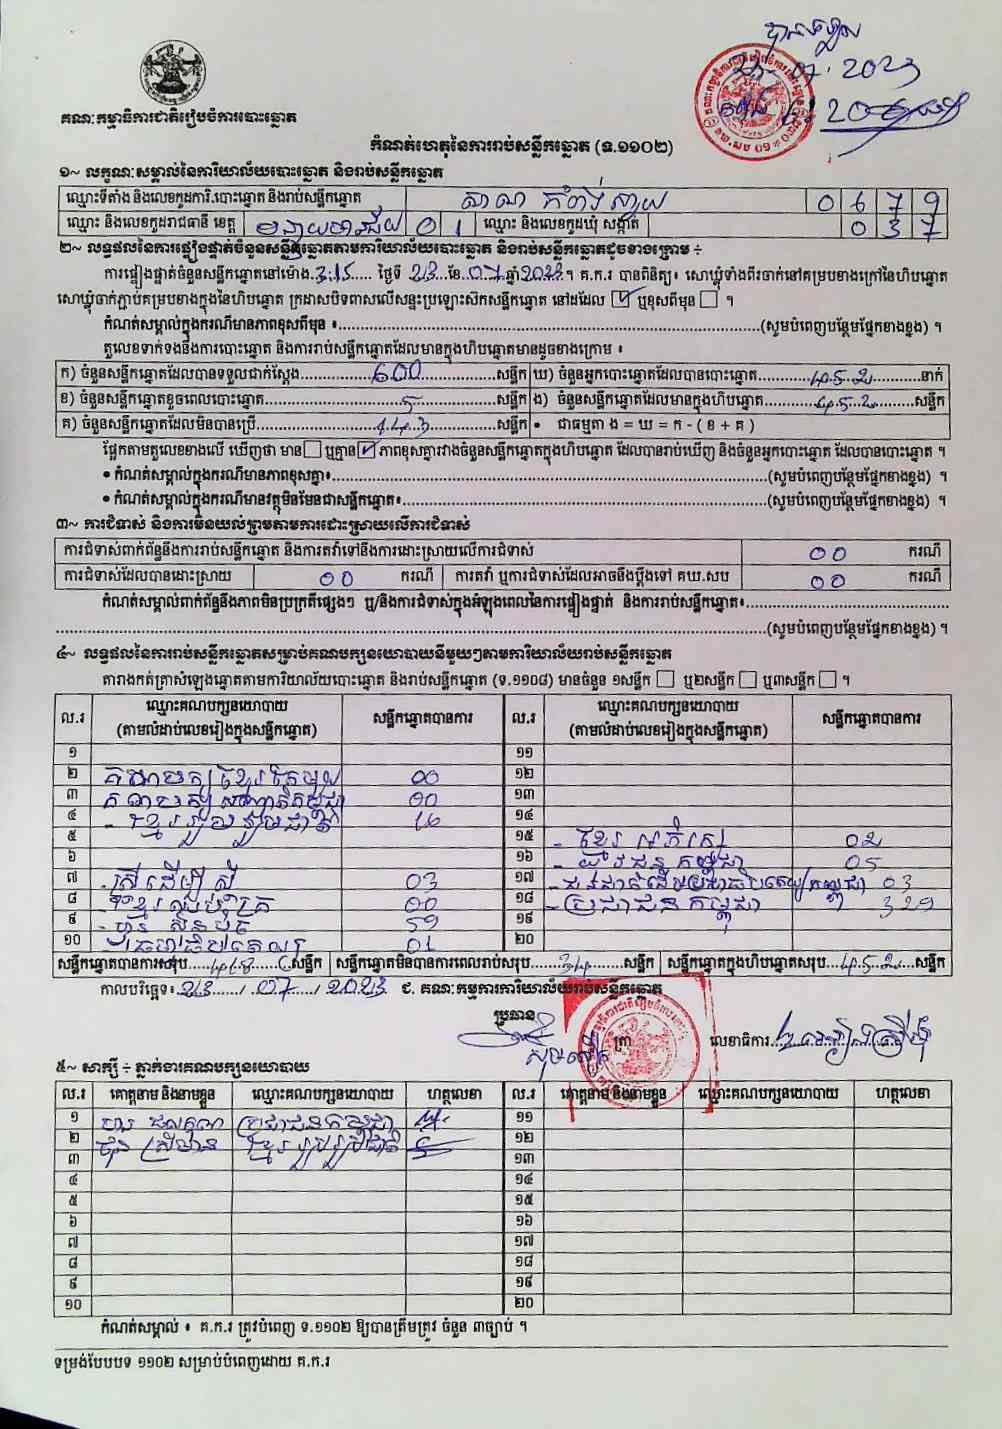 បានទទួល
23.07.2023
គណៈកម្មាធិការជាតិរៀបចំការបោះឆ្នោត
កំណត់ហេតុនៃការរាប់សន្លឹកឆ្នោត (ទ.១១០២)
១~ លក្ខណៈសម្គាល់នៃការិយាល័យបោះឆ្នោត និងរាប់សន្លឹកឆ្នោត
ឈ្មោះទីតាំង និងលេខកូដការិ.បោះឆ្នោត និងរាប់សន្លឹកឆ្នោត សាលា 0 6 7 9
ឈ្មោះ និងលេខកូដរាជធានី ខេត្ត បន្ទាយមានជ័យ 0 1 ឈ្មោះ និងលេខកូដឃុំ សង្កាត់ 0 3 7
២~ លទ្ធផលនៃការផ្ទៀងផ្ទាត់ចំនួនសន្លឹកឆ្នោតតាមការិយាល័យបោះឆ្នោត និងរាប់សន្លឹកឆ្នោតដូចខាងក្រោម ÷
ការផ្ទៀងផ្ទាត់ចំនួនសន្លឹកឆ្នោតនៅម៉ោង.3:15..... ថ្ងៃទី 23 ខែ 07 ឆ្នាំ 2023។ គ.ក.រ បានពិនិត្យ៖ សោឃ្លុំទាំងពីរចាក់នៅគម្របខាងក្រៅនៃហិបឆ្នោត
សោឃ្លុំចាក់ភ្ជាប់គម្របខាងក្នុងនៃហិបឆ្នោត ក្រដាសបិទពាសលើសន្ទះប្រឡោះស៊កសន្លឹកឆ្នោត នៅដដែល ☑ ឬខុសពីមុន ☐ ។
កំណត់សម្គាល់ក្នុងករណីមានភាពខុសពីមុន ៖..........(សូមបំពេញបន្ថែមផ្នែកខាងខ្នង) ។
តួលេខទាក់ទងនឹងការបោះឆ្នោត និងការរាប់សន្លឹកឆ្នោតដែលមានក្នុងហិបឆ្នោតមានដូចខាងក្រោម ៖
ក) ចំនួនសន្លឹកឆ្នោតដែលបានទទួលជាក់ស្តែង..........600..........សន្លឹក ឃ) ចំនួនអ្នកបោះឆ្នោតដែលបានបោះឆ្នោត..........452..........នាក់
ខ) ចំនួនសន្លឹកឆ្នោតខូចពេលបោះឆ្នោត..........5..........សន្លឹក ង) ចំនួនសន្លឹកឆ្នោតដែលមានក្នុងហិបឆ្នោត..........452..........សន្លឹក
គ) ចំនួនសន្លឹកឆ្នោតដែលមិនបានប្រើ..........143..........សន្លឹក • ជាធម្មតា ង = ឃ = ក - ( ខ + គ )
ផ្អែកតាមតួលេខខាងលើ ឃើញថា មាន ☐ ឬគ្មាន ☑ ភាពខុសគ្នារវាងចំនួនសន្លឹកឆ្នោតក្នុងហិបឆ្នោត ដែលបានរាប់ឃើញ និងចំនួនអ្នកបោះឆ្នោត ដែលបានបោះឆ្នោត ។
• កំណត់សម្គាល់ក្នុងករណីមានភាពខុសគ្នា៖..........(សូមបំពេញបន្ថែមផ្នែកខាងខ្នង) ។
• កំណត់សម្គាល់ក្នុងករណីមានវត្ថុមិនមែនជាសន្លឹកឆ្នោត៖..........(សូមបំពេញបន្ថែមផ្នែកខាងខ្នង) ។
៣~ ការជំទាស់ និងការមិនយល់ព្រមតាមការដោះស្រាយលើការជំទាស់
ការជំទាស់ពាក់ព័ន្ធនឹងការរាប់សន្លឹកឆ្នោត និងការតវ៉ាទៅនឹងការដោះស្រាយលើការជំទាស់ 00 ករណី
ការជំទាស់ដែលបានដោះស្រាយ 00 ករណី ការតវ៉ា ឬការជំទាស់ដែលអាចនឹងប្តឹងទៅ គឃ.សប 00 ករណី
កំណត់សម្គាល់ពាក់ព័ន្ធនឹងភាពមិនប្រក្រតីផ្សេងៗ ឬ/និងការជំទាស់ក្នុងអំឡុងពេលនៃការផ្ទៀងផ្ទាត់ និងការរាប់សន្លឹកឆ្នោត៖..........
..........(សូមបំពេញបន្ថែមផ្នែកខាងខ្នង) ។
៤~ លទ្ធផលនៃការរាប់សន្លឹកឆ្នោតសម្រាប់គណបក្សនយោបាយនីមួយៗតាមការិយាល័យរាប់សន្លឹកឆ្នោត
តារាងកត់ត្រាសំឡេងឆ្នោតតាមការិយាល័យបោះឆ្នោត និងរាប់សន្លឹកឆ្នោត (ទ.១១០៨) មានចំនួន ១សន្លឹក ☐ ឬ២សន្លឹក ☐ ឬ៣សន្លឹក ☐ ។
ល.រ ឈ្មោះគណបក្សនយោបាយ (តាមលំដាប់លេខរៀងក្នុងសន្លឹកឆ្នោត) សន្លឹកឆ្នោតបានការ ល.រ ឈ្មោះគណបក្សនយោបាយ (តាមលំដាប់លេខរៀងក្នុងសន្លឹកឆ្នោត) សន្លឹកឆ្នោតបានការ
១ ១១
២ គណបក្ស ខ្មែរ 00 ១២
៣ គណបក្ស 00 ១៣
៤ - ខ្មែររួបរួមជាតិ 16 ១៤
៥ ១៥ - ខ្មែរ អភិរក្ស 02
៦ ១៦ - យុវជន កម្ពុជា 05
៧ - ស្រី ដើម្បី ស្រី 03 ១៧ - ជនជាតិដើមប្រជាធិបតេយ្យកម្ពុជា 03
៨ - ខ្មែរ 00 ១៨ - ប្រជាជនកម្ពុជា 329
៩ - ហ៊្វុនស៊ិនប៉ិច 59 ១៩
១០ 01 ២០
សន្លឹកឆ្នោតបានការសរុប.....418.....សន្លឹក សន្លឹកឆ្នោតមិនបានការពេលរាប់សរុប.....34.....សន្លឹក សន្លឹកឆ្នោតក្នុងហិបឆ្នោតសរុប.....452.....សន្លឹក
កាលបរិច្ឆេទ៖ 23 / 07 / 2023 ជ. គណៈកម្មការការិយាល័យរាប់សន្លឹកឆ្នោត
ប្រធាន ត្រា លេខាធិការ
៥~ សាក្សី ÷ ភ្នាក់ងារគណបក្សនយោបាយ
ល.រ គោត្តនាម និងនាមខ្លួន ឈ្មោះគណបក្សនយោបាយ ហត្ថលេខា ល.រ គោត្តនាម និងនាមខ្លួន ឈ្មោះគណបក្សនយោបាយ ហត្ថលេខា
១ ប្រជាជនកម្ពុជា ១១
២ ខ្មែររួបរួមជាតិ ១២
៣ ១៣
៤ ១៤
៥ ១៥
៦ ១៦
៧ ១៧
៨ ១៨
៩ ១៩
១០ ២០
កំណត់សម្គាល់ ៖ គ.ក.រ ត្រូវបំពេញ ទ.១១០២ ឱ្យបានត្រឹមត្រូវ ចំនួន ៣ច្បាប់ ។
ទម្រង់បែបបទ ១១០២ សម្រាប់បំពេញដោយ គ.ក.រ